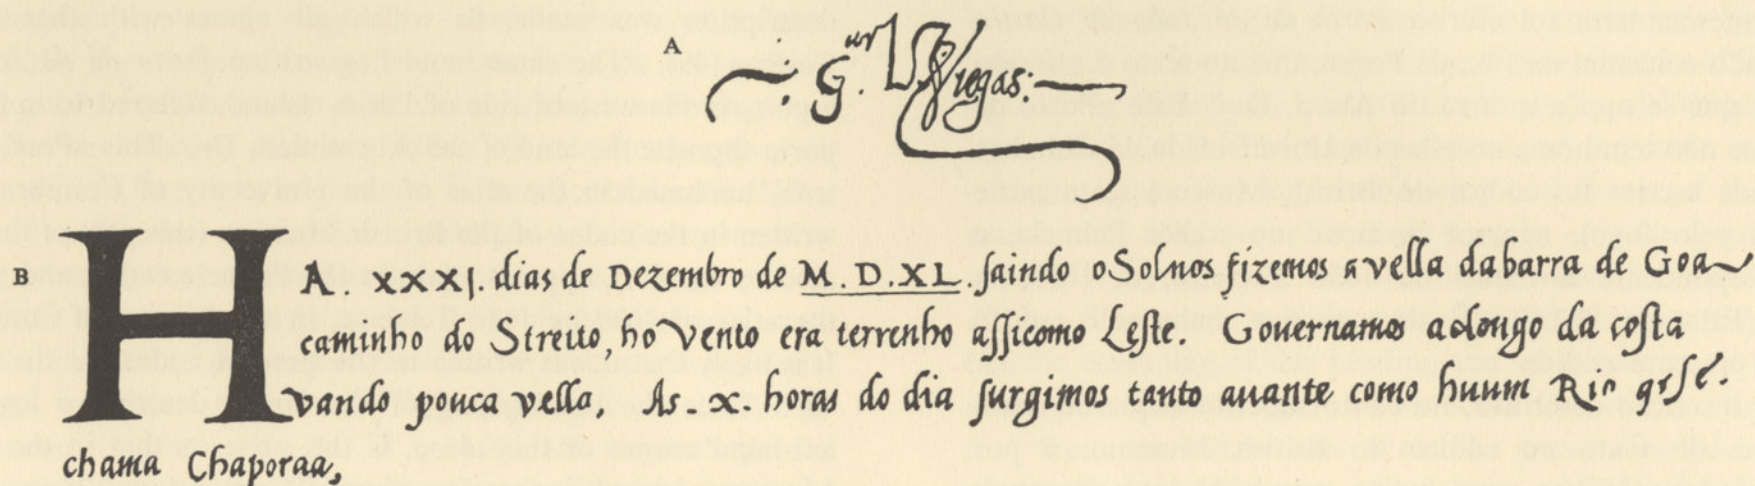 A
G.ar Viegas:
B
HA. XXXI. dias de Dezembro de M. D. XL. saindo o Sol nos fizemos a vella da barra de Goa
caminho do Streito, ho vento era terrenho assicomo Leste. Gouernamos ao longo da costa
vando pouca vella, As. x. horas do dia surgimos tanto auante como huum Rio q̃ se
chama Chaporaa,